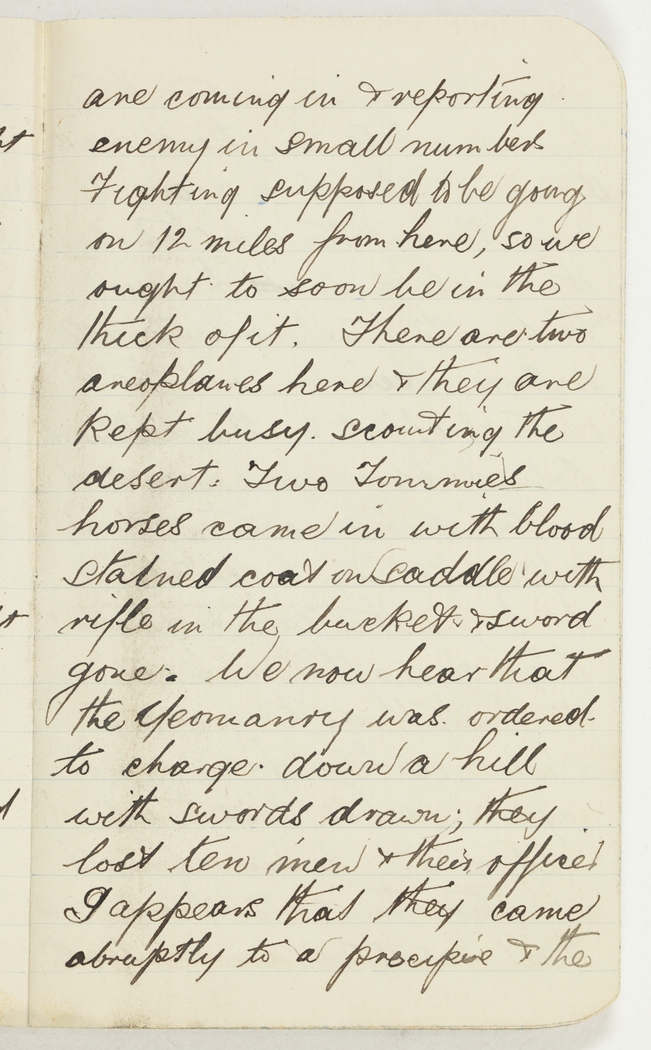 are coming in & reporting
enemy in small numbers
Fighting supposed to be going
on 12 miles from here, so we
ought to soon be in the
thick of it. There are two
areoplanes here & they are
kept busy. scouting the
desert. Two Tommies
horses came in with blood
stained coat on saddle with
rifle in the bucket & sword
gone. We now hear that
the Yeomanry was ordered
to charge down a hill
with swords drawn; they
lost ten men & their officer
I appears that they came
abruptly to a precipice & the